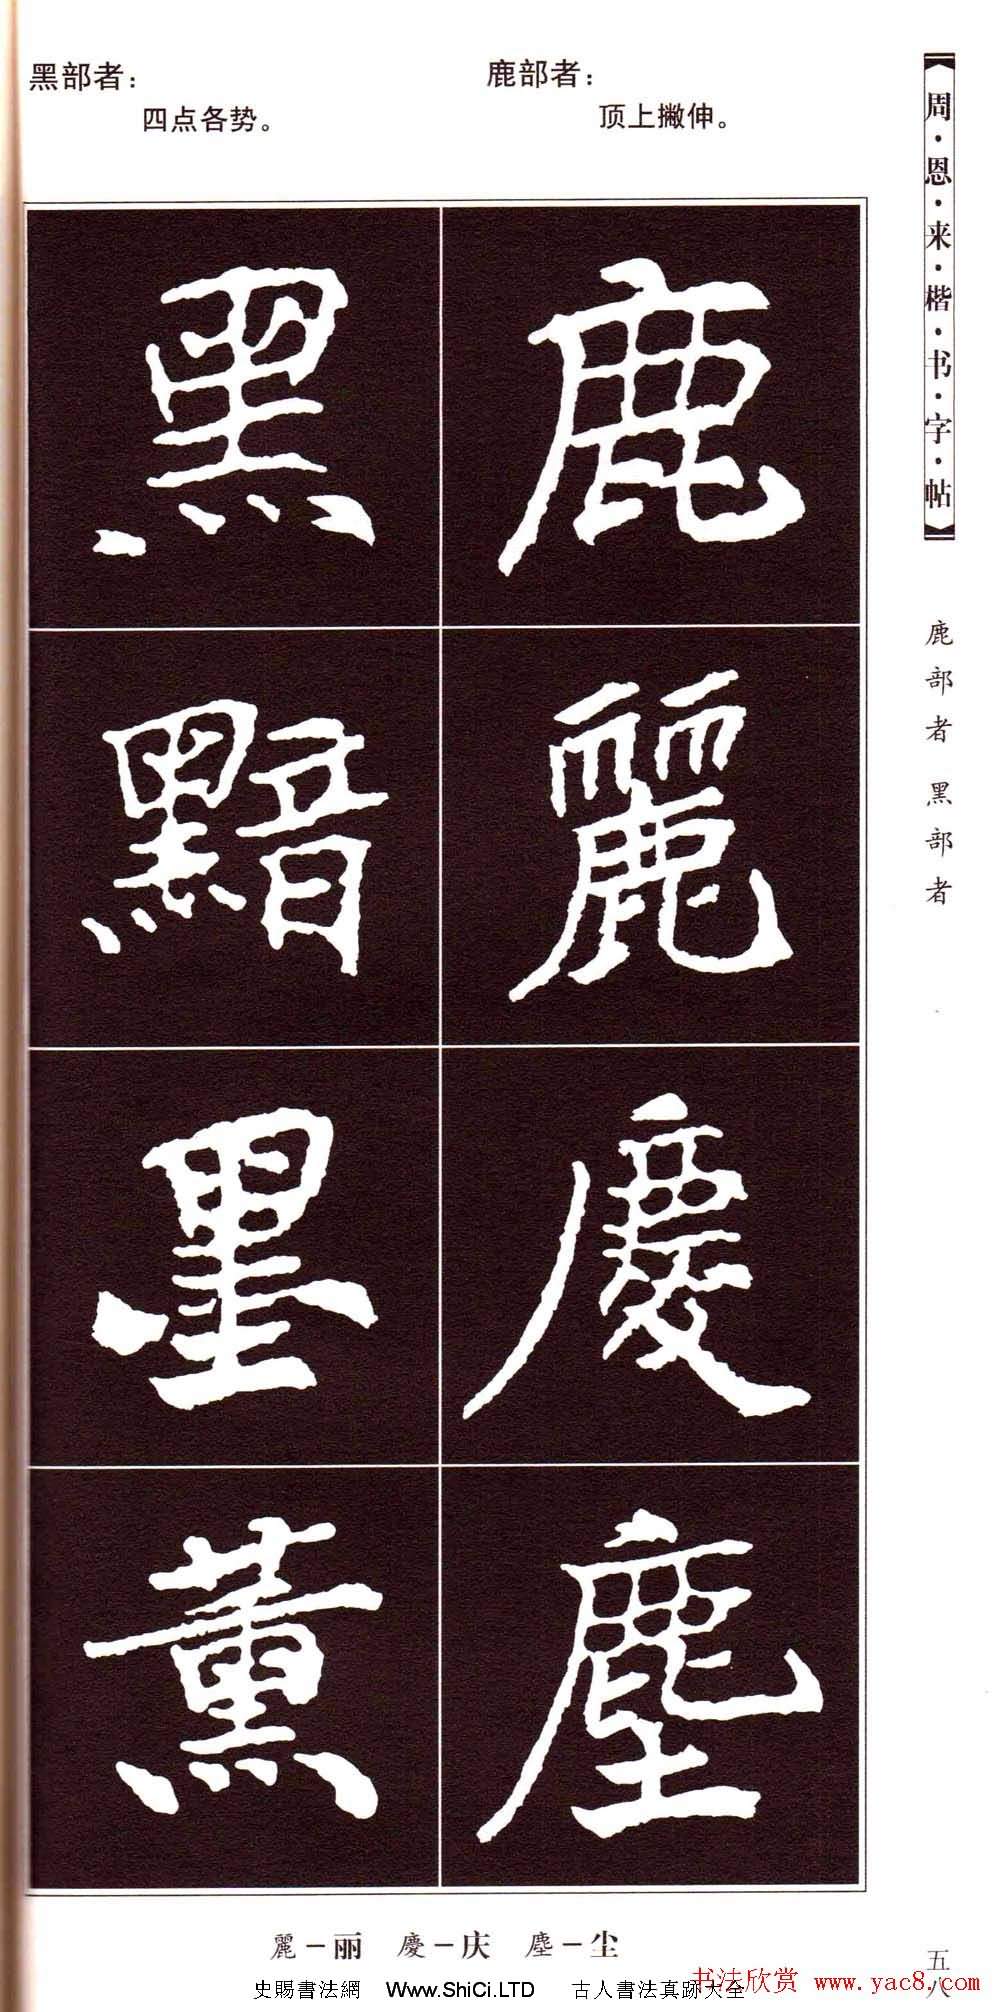 周·恩·来·楷·书·字·帖
鹿部者 黑部者
鹿部者：
顶上撇伸。
黑部者：
四点各势。
鹿
麗
慶
塵
黑
黯
墨
薰
麗－丽 慶－庆 塵－尘
五八
书法欣赏 www.yac8.com
史賜書法網 Www.ShiCi.LTD 古人書法真跡大全